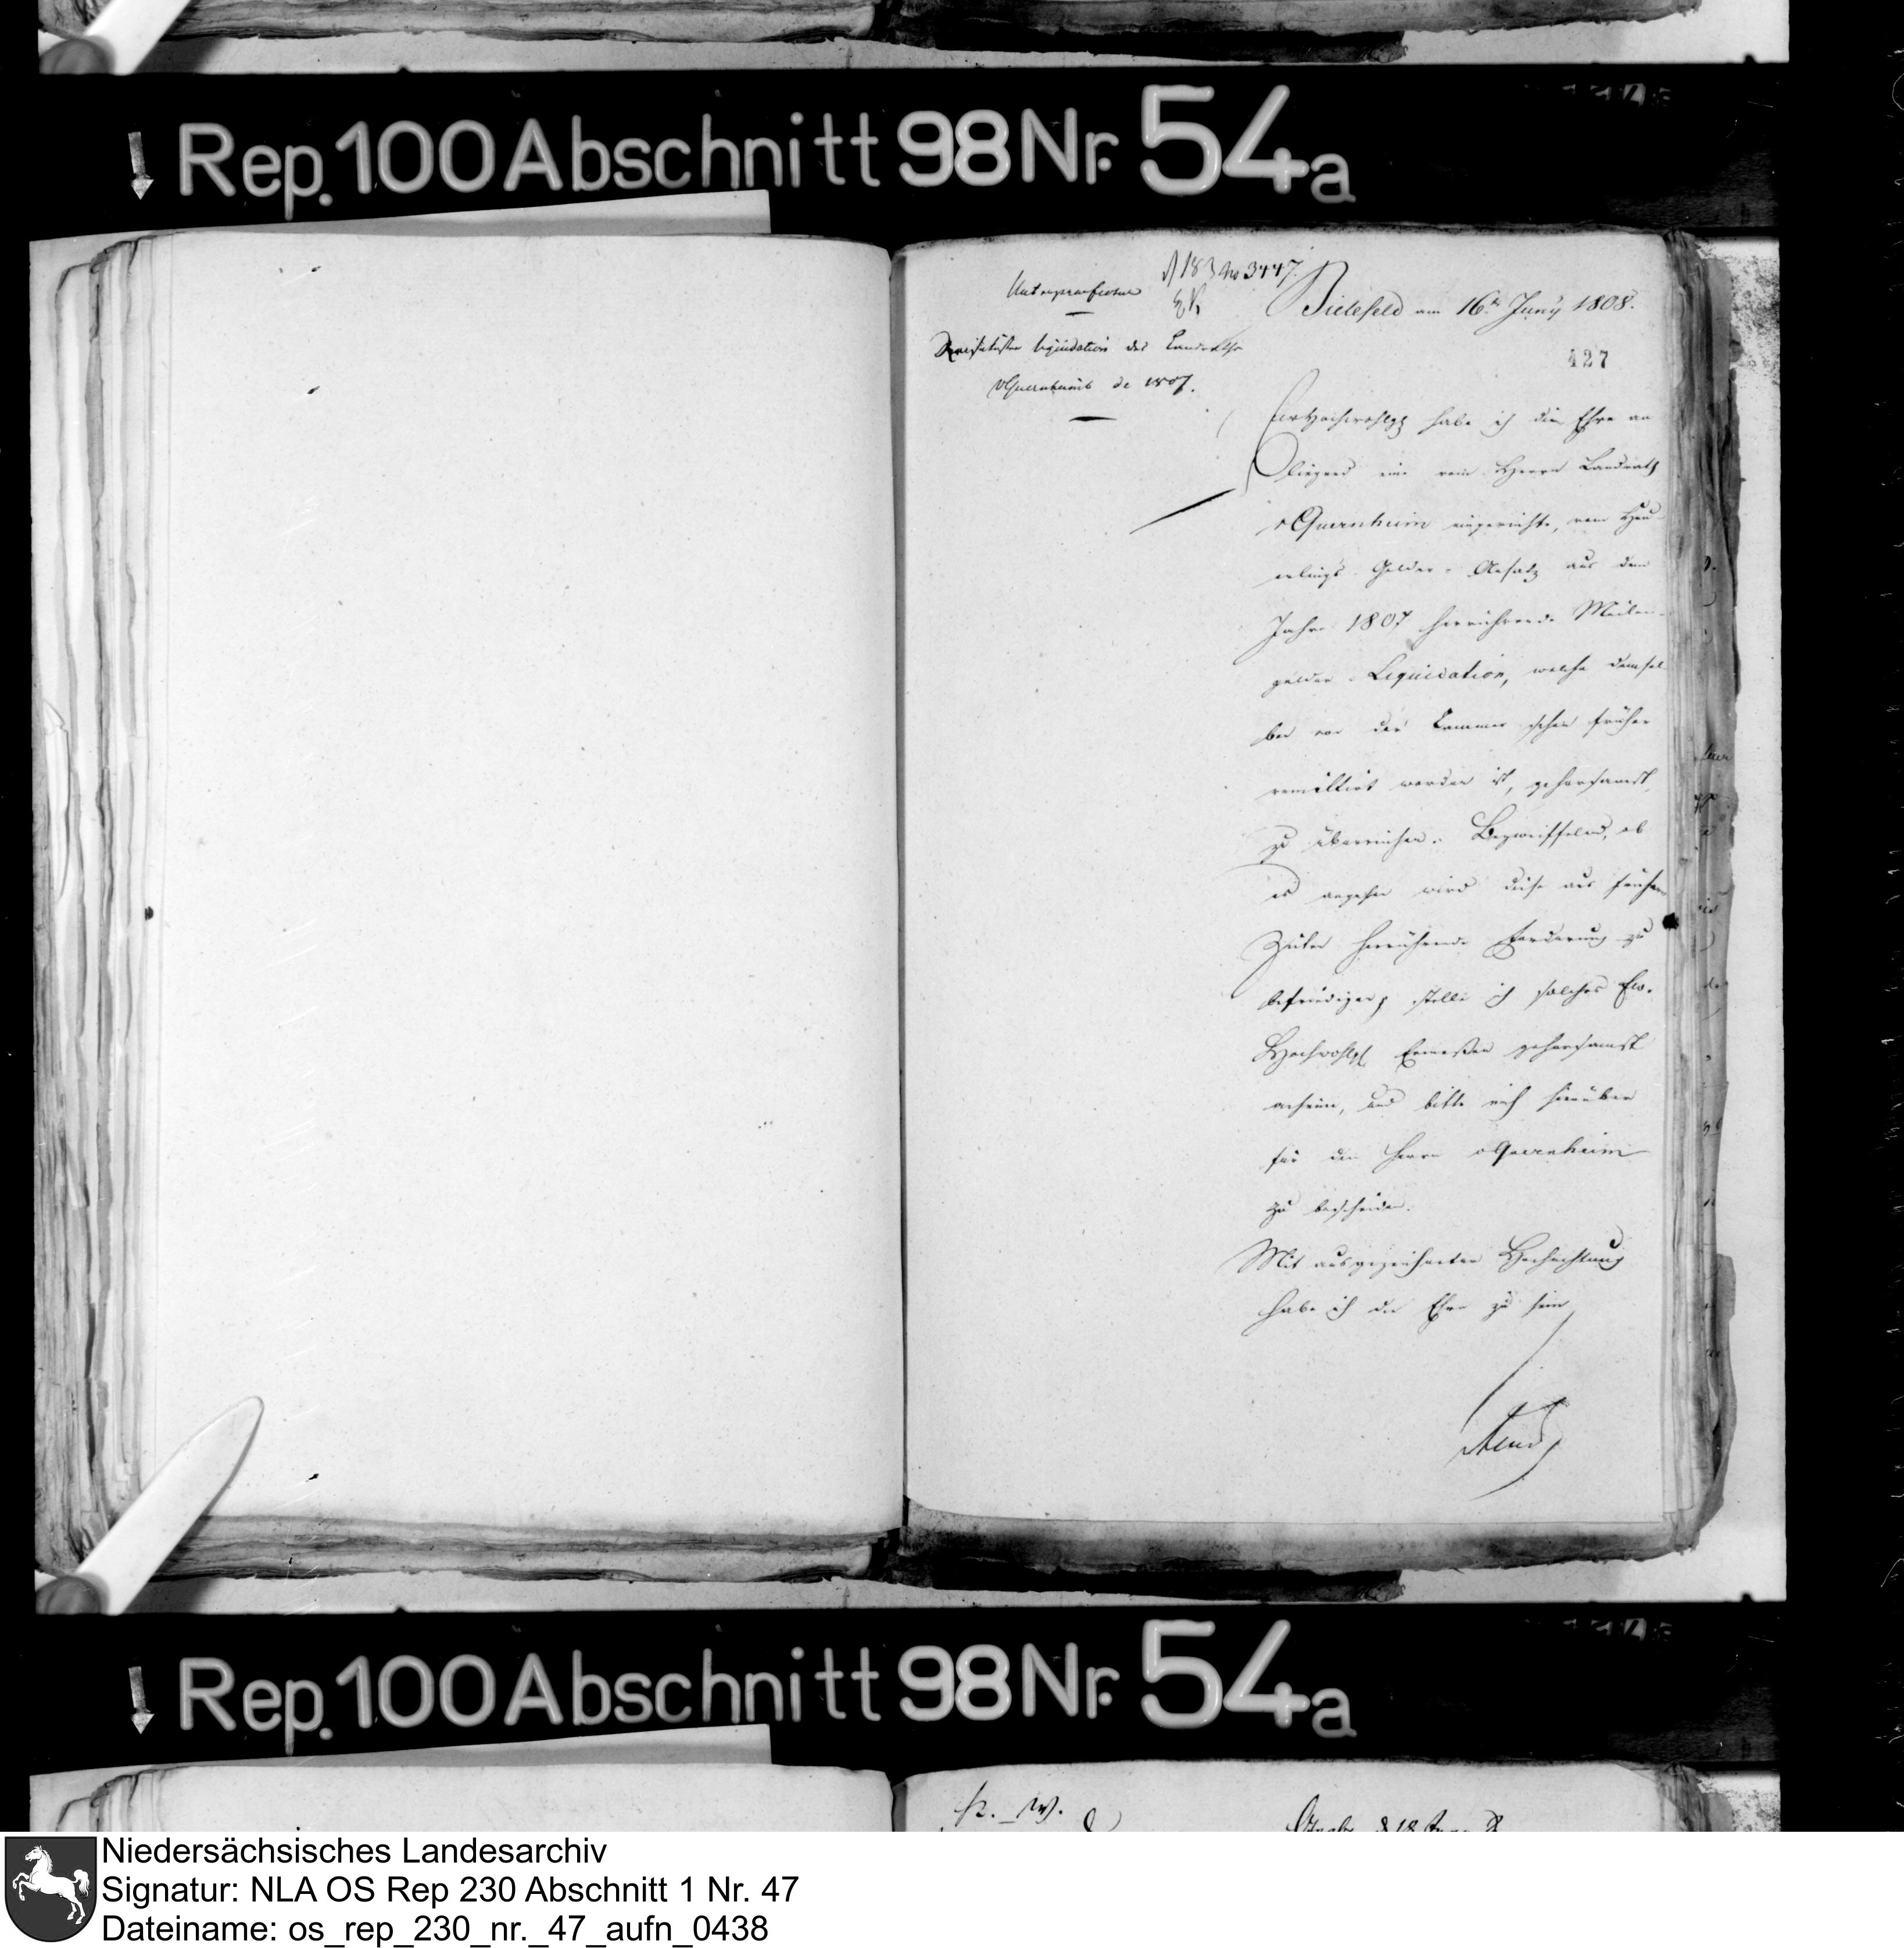 Rep. 100 Abschnitt 98 Nr. 54a
No 3447.
Unterpraefectur
Bielefeld am 16t Juny 1808.
Liquidation des Landraths
vQuernheimb de 1807.
427
Ew Hochwohlg habe ich die Ehre an
liegend eine vom Herrn Landrath
v Quernheim eingereichte, vom Heu-
erlings-Gelder-Ansatz aus dem
Jahre 1807 herrührende Meilen-
gelder-Liquidation, welche demsel-
ben von der Cammer schon früher
remittirt worden ist, gehorsamst
zu überreichen. Bezweifelnd, ob
es angehen wird diese aus frühern
Zeiten herrührende Forderung zu
befriedigen, stelle ich solches Ew.
Hochwohlg Ermeßen gehorsamst
anheim, und bitte mich hierüber
für den Herrn v Quernheim
zu bescheiden.
Mit ausgezeichneter Hochachtung
habe ich die Ehre zu sein
Rep. 100 Abschnitt 98 Nr. 54a
Niedersächsisches Landesarchiv
Signatur: NLA OS Rep 230 Abschnitt 1 Nr. 47
Dateiname: os_rep_230_nr._47_aufn_0438